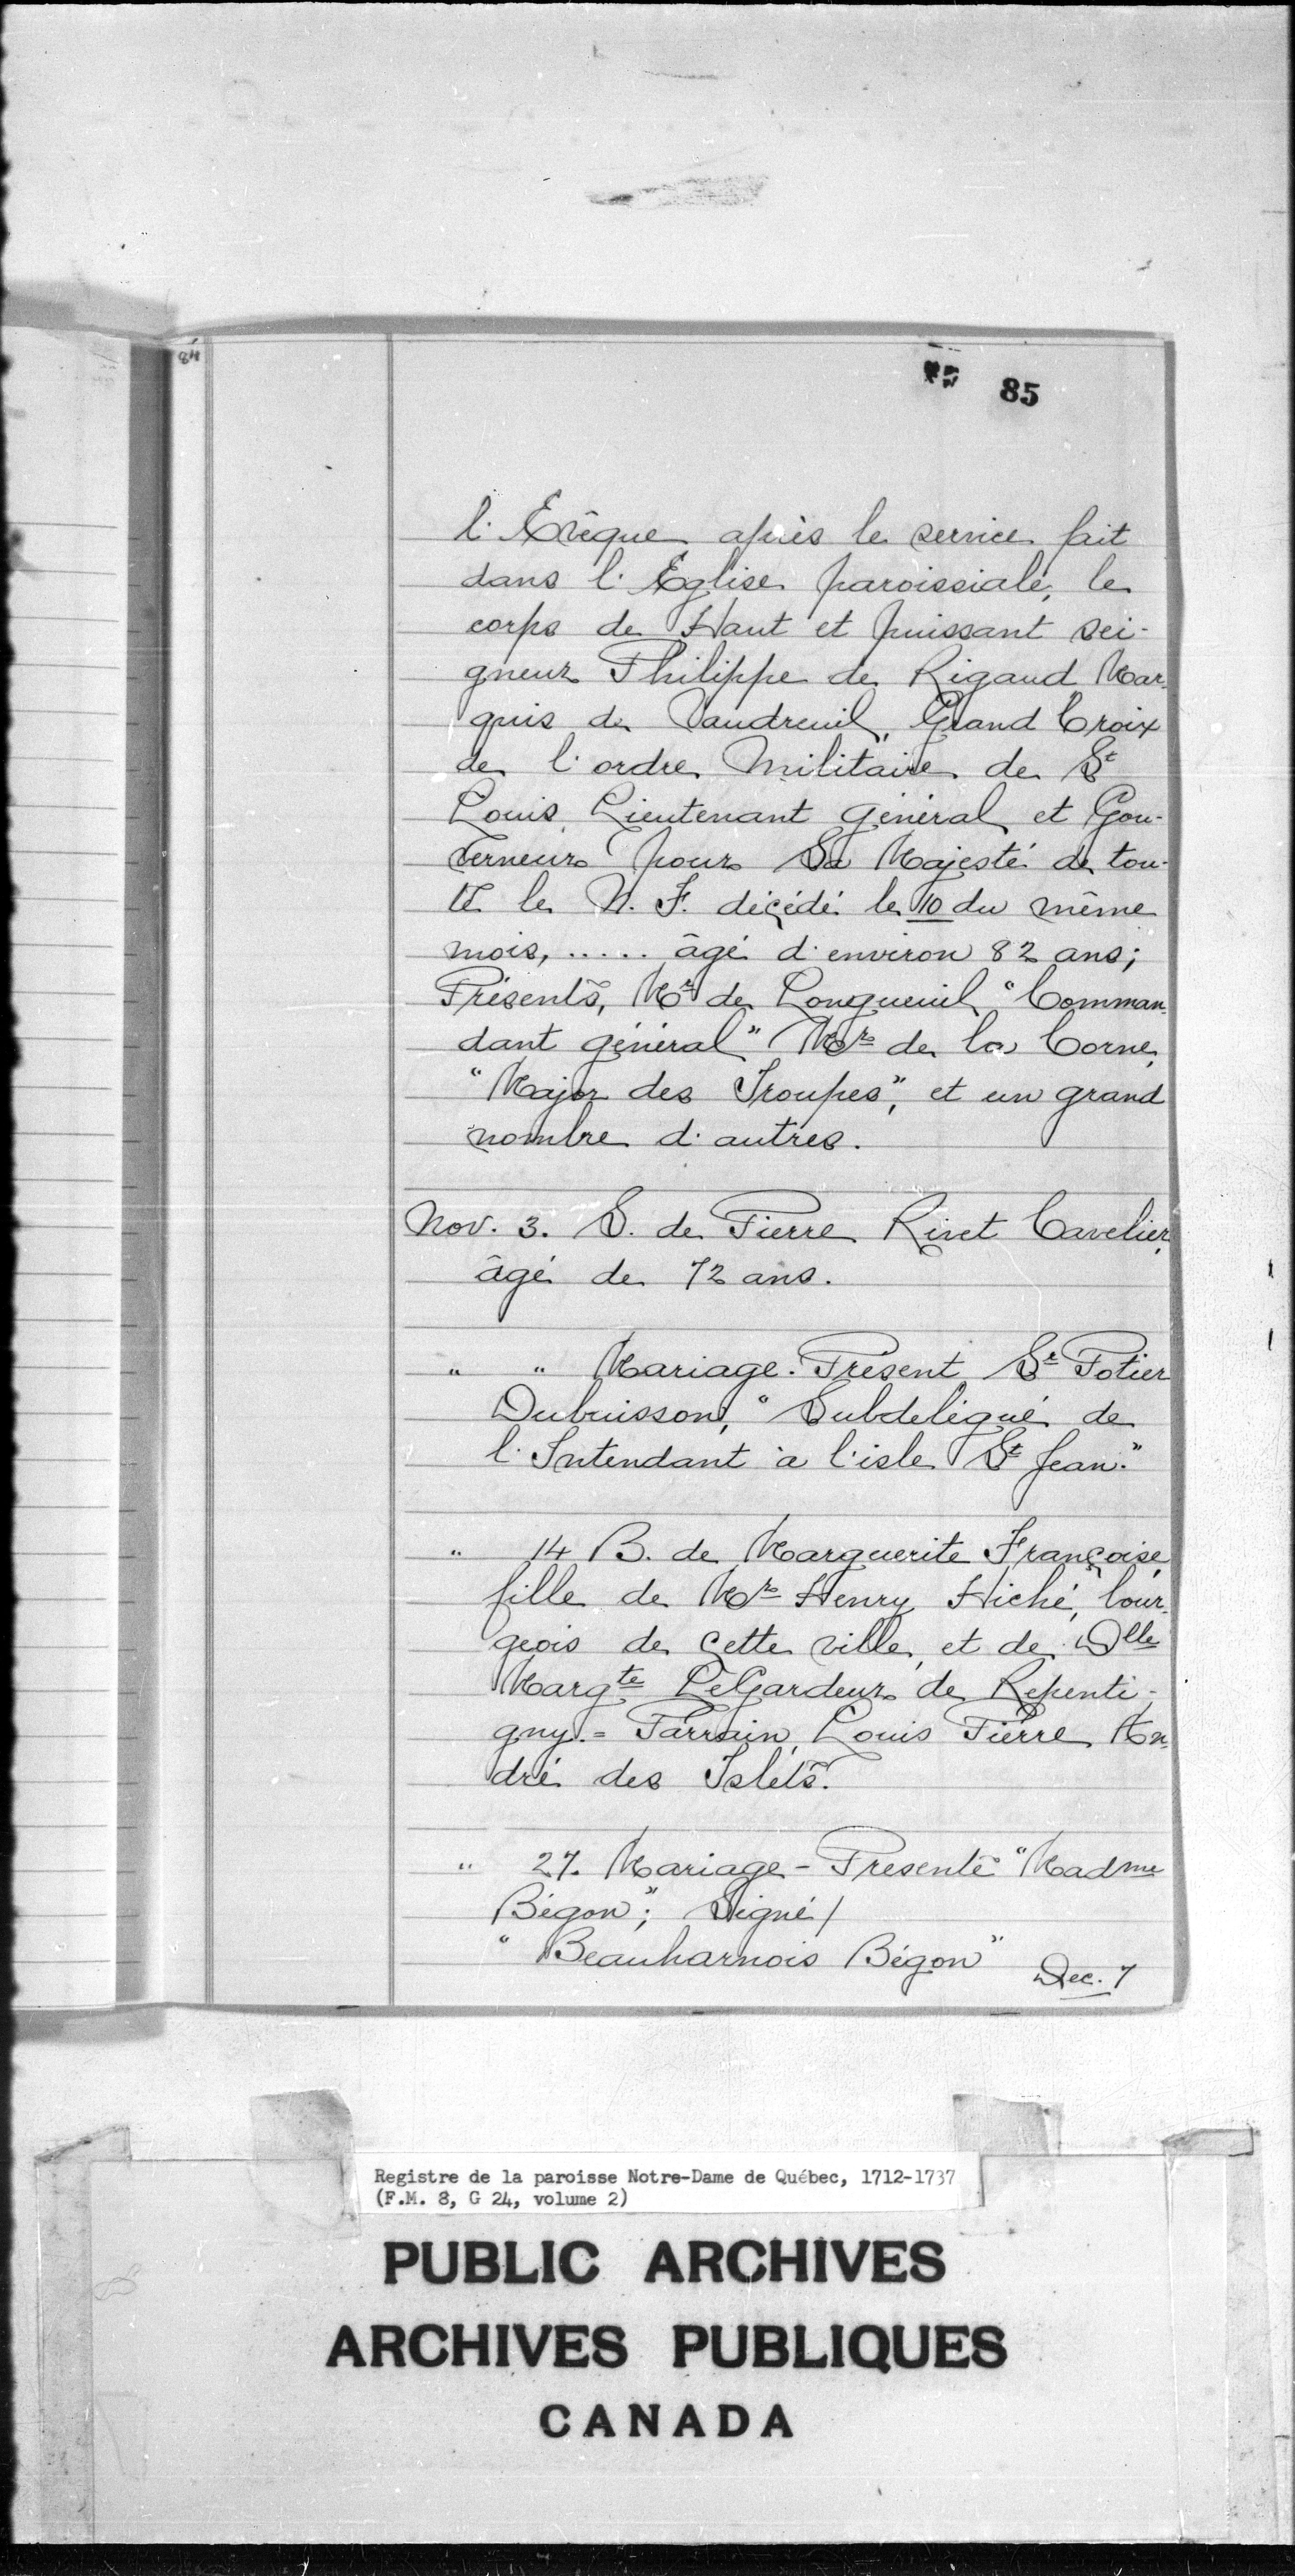 84
85
l'Evêque après le service fait
dans l'Eglise paroissiale, le
corps de Haut et puissant sei-
gneur Philippe de Rigaud Mar-
quis de Vaudreuil, Grand Croix
de l'ordre Militaire de St
Louis, Lieutenant général et Gou-
verneur pour Sa Majesté de tou-
te la N. F. décédé le 10 du même
mois, ..... âgé d'environ 82 ans;
Présents, Mr de Longueuil "Comman-
dant général" Mr de la Corne,
"Major des Troupes", et un grand
nombre d'autres.
Nov. 3. S. de Pierre Rivet Cavelier,
âgé de 72 ans.
" " Mariage. Présent Sr Potier
Dubuisson, "Subdelégué de
l'Intendant à l'isle St Jean."
" 14 B. de Marguerite Françoise,
fille de Mr Henry Hiché, bour-
geois de cette ville, et de Dlle
Margte LeGardeur de Repenti-
gny. = Parrain, Louis Pierre An-
dré des Islets.
" 27. Mariage - Présente "Madme
Bégon"; Signé/
"Beauharnois Bégon"
Dec. 7
Registre de la paroisse Notre-Dame de Québec, 1712-1737
(F.M. 8, G 24, volume 2)
PUBLIC ARCHIVES
ARCHIVES PUBLIQUES
CANADA